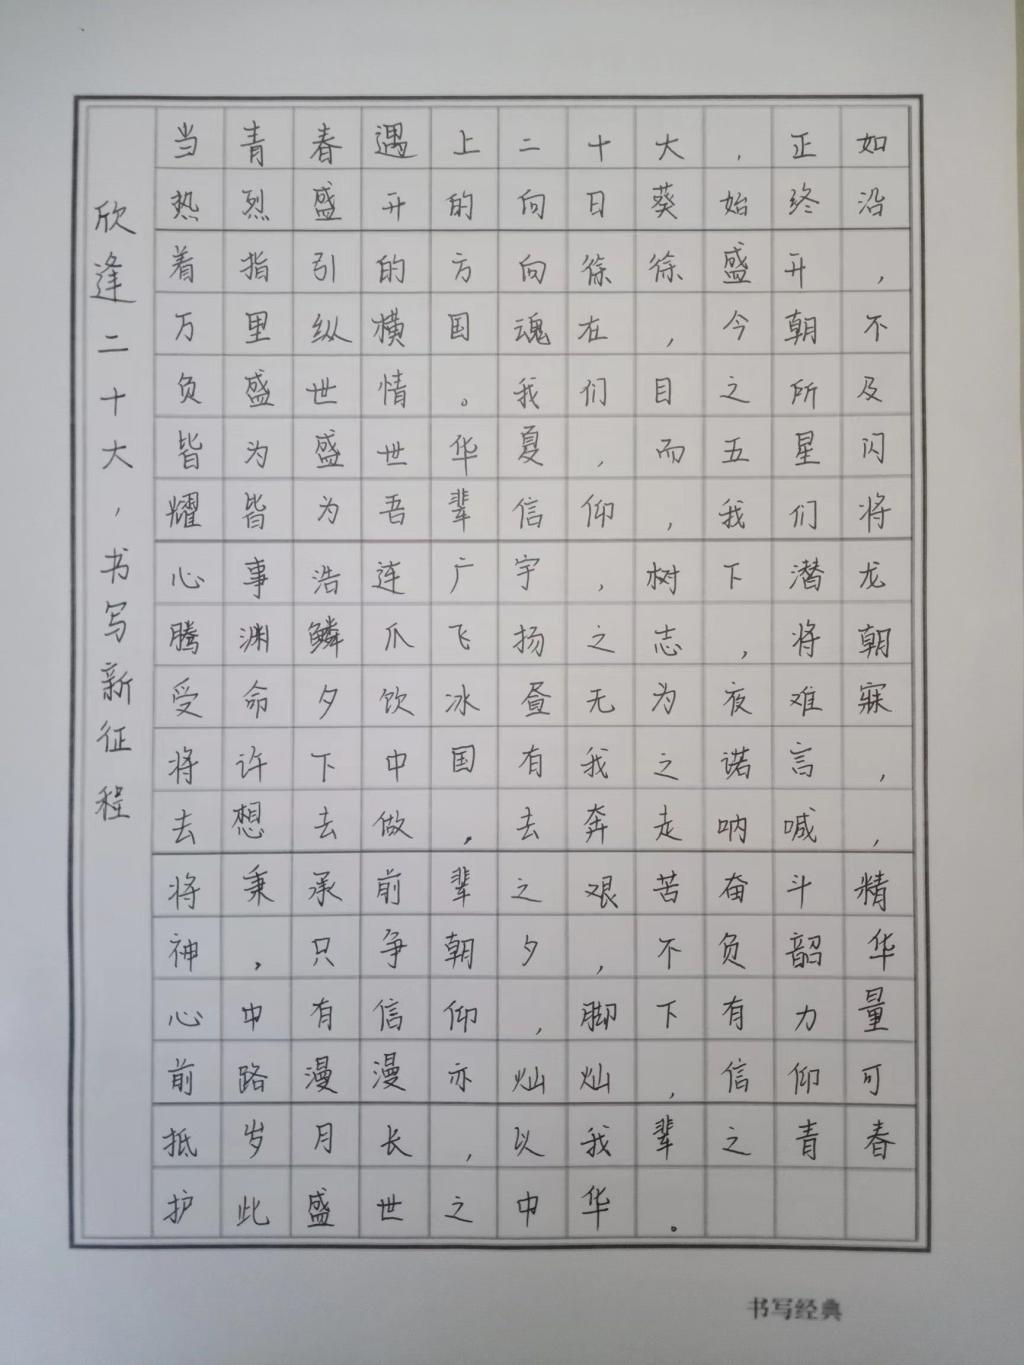 欣逢二十大，书写新征程
当青春遇上二十大，正如
热烈盛开的向日葵始终沿
着指引的方向徐徐盛开，
万里纵横国魂在，今朝不
负盛世情。我们目之所及
皆为盛世华夏，而五星闪
耀皆为吾辈信仰，我们将
心事浩连广宇，树下潜龙
腾渊鳞爪飞扬之志，将朝
受命夕饮冰昼无为夜难寐
将许下中国有我之诺言，
去想去做，去奔走呐喊，
将秉承前辈之艰苦奋斗精
神，只争朝夕，不负韶华
心中有信仰，脚下有力量
前路漫漫亦灿灿，信仰可
抵岁月长，以我辈之青春
护此盛世之中华。
书写经典